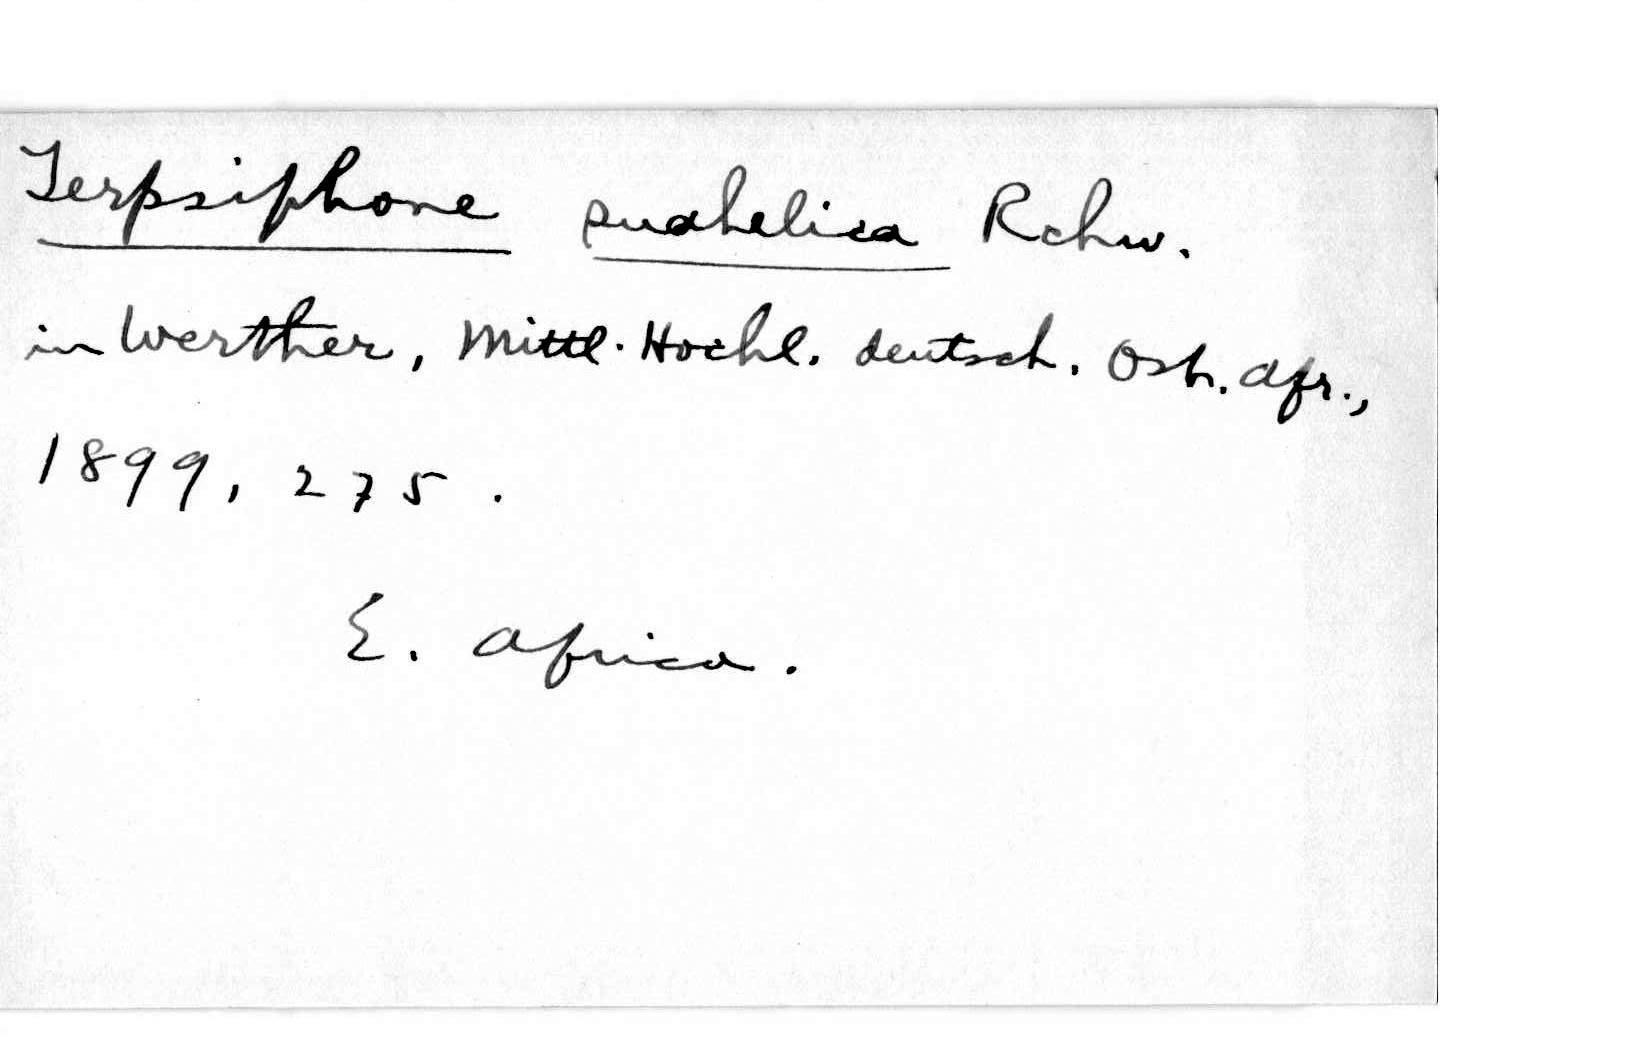 Terpsiphone suahelica Rchw.
in Werther, Mittl. Hochl. deutsch. Ost. Afr.,
1899, 275.
E. Africa.